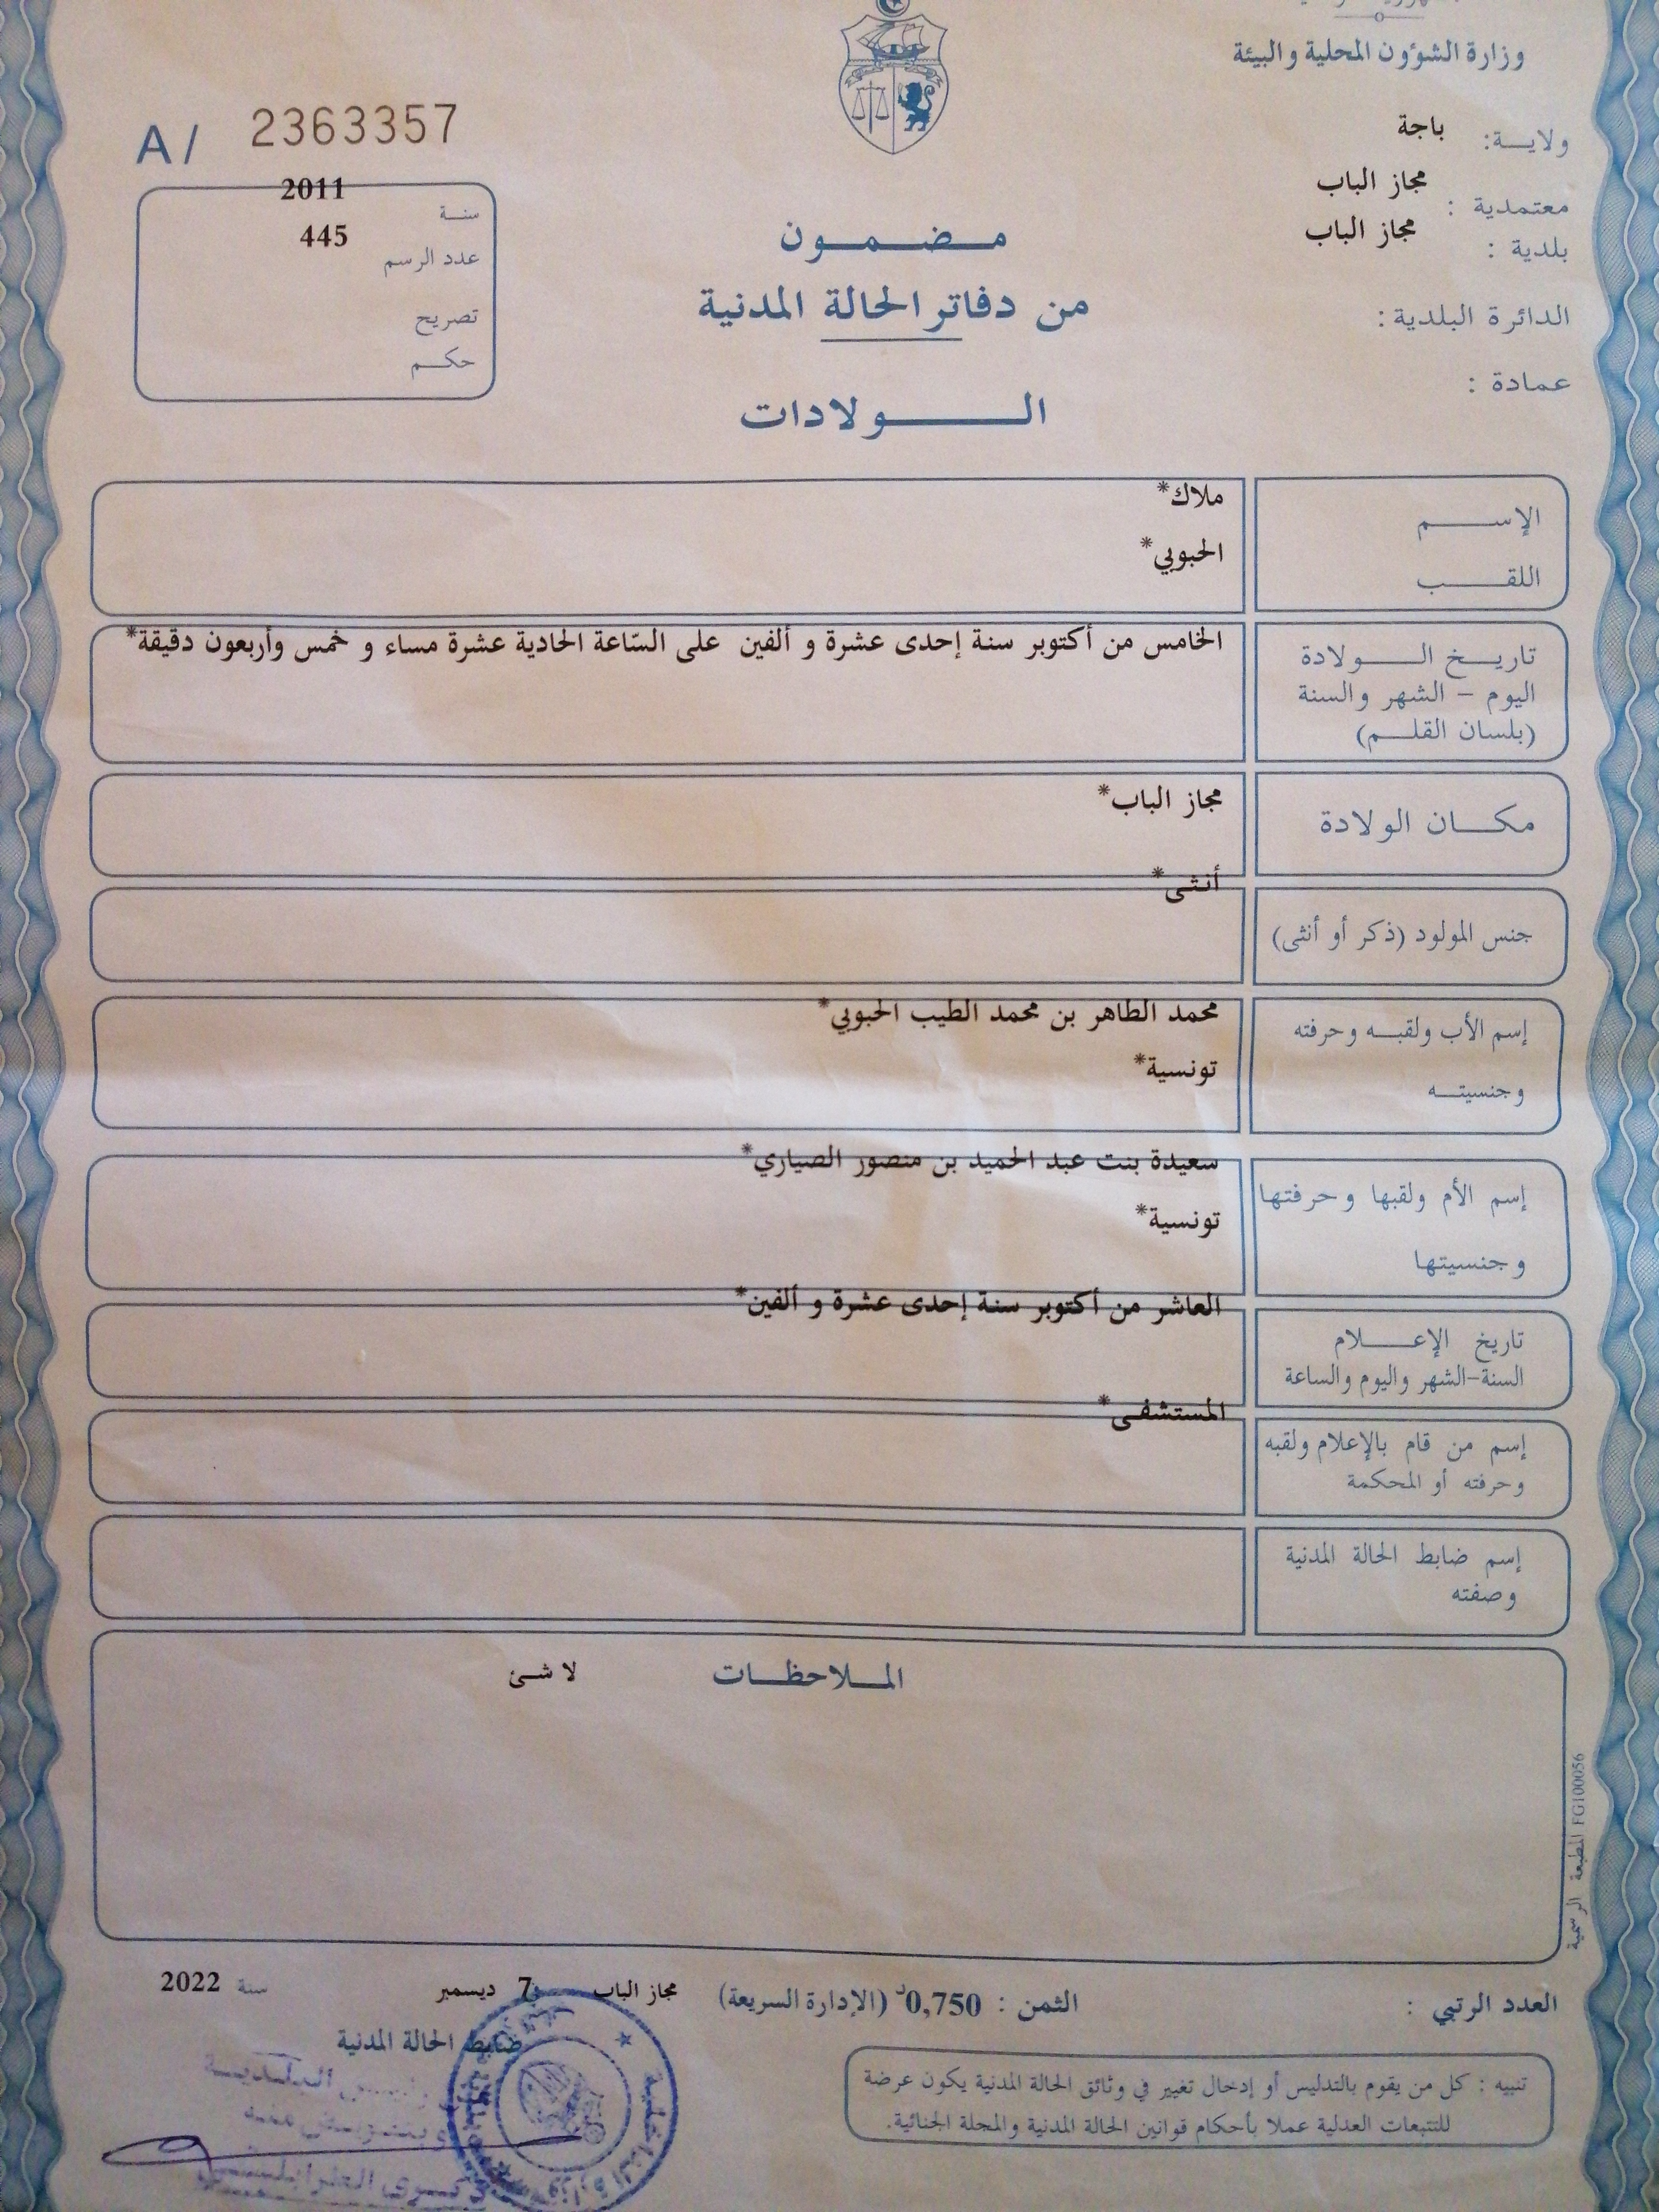 وزارة الشؤون المحلية والبيئة
ولاية: باجة
معتمدية : مجاز الباب
بلدية : مجاز الباب
الدائرة البلدية :
عمادة :
A/ 2363357
سنة 2011
عدد الرسم 445
تصريح
حكم
مضمون
من دفاتر الحالة المدنية
الولادات
الإسم ملاك*
اللقب الحبوبي*
تاريخ الولادة الخامس من أكتوبر سنة إحدى عشرة و ألفين على السّاعة الحادية عشرة مساء و خمس وأربعون دقيقة*
اليوم - الشهر والسنة
(بلسان القلم)
مكان الولادة مجاز الباب*
جنس المولود (ذكر أو أنثى) أنثى*
إسم الأب ولقبه وحرفته محمد الطاهر بن محمد الطيب الحبوبي*
وجنسيته تونسية*
إسم الأم ولقبها وحرفتها سعيدة بنت عبد الحميد بن منصور الصياري*
وجنسيتها تونسية*
تاريخ الإعلام العاشر من أكتوبر سنة إحدى عشرة و ألفين*
السنة-الشهر واليوم والساعة
إسم من قام بالإعلام ولقبه المستشفى*
وحرفته أو المحكمة
إسم ضابط الحالة المدنية
وصفته
الملاحظات لا شئ
المطبعة الرسمية FG100056
العدد الرتبي :
الثمن : 0,750د (الإدارة السريعة)
مجاز الباب 7 ديسمبر سنة 2022
ضابط الحالة المدنية
تنبيه : كل من يقوم بالتدليس أو إدخال تغيير في وثائق الحالة المدنية يكون عرضة
للتتبعات العدلية عملا بأحكام قوانين الحالة المدنية والمجلة الجنائية.